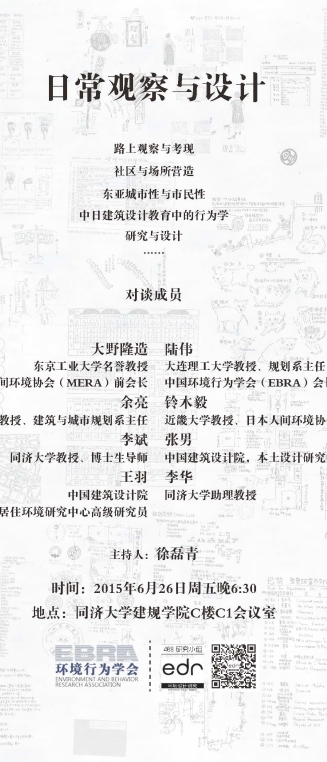 日常观察与设计
路上观察与考现
社区与场所营造
东亚城市性与市民性
中日建筑设计教育中的行为学
研究与设计
······
对谈成员
大野隆造 陆伟
东京工业大学名誉教授 大连理工大学教授、规划系主任
间环境协会（MERA）前会长 中国环境行为学会（EBRA）会
余亮 铃木毅
教授、建筑与城市规划系主任 近畿大学教授、日本人间环境协
李斌 张男
同济大学教授、博士生导师 中国建筑设计院，本土设计研究
王羽 李华
中国建筑设计院 同济大学助理教授
居住环境研究中心高级研究员
主持人：徐磊青
时间：2015年6月26日周五晚6:30
地点：同济大学建规学院C楼C1会议室
EBRA
环境行为学会
ENVIRONMENT AND BEHAVIOR
RESEARCH ASSOCIATION
研究小组
edr